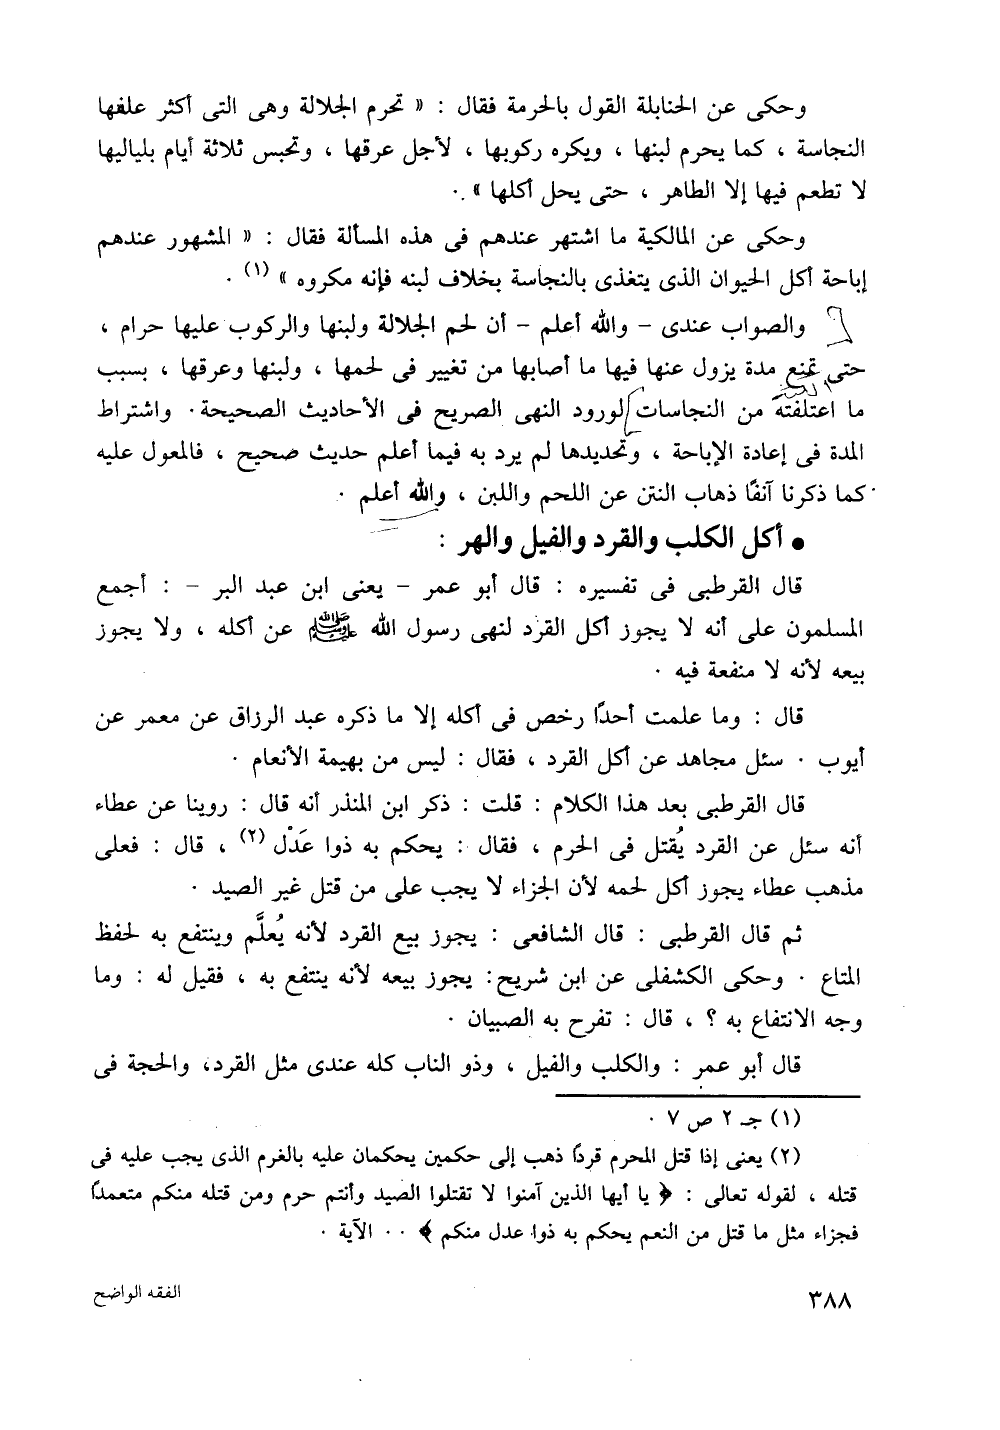 وحكى عن الحنابلة القول بالحرمة فقال : « تحرم الجلالة وهى التى أكثر علفها
النجاسة ، كما يحرم لبنها ، ويكره ركوبها ، لأجل عرقها ، وتحبس ثلاثة أيام بلياليها
لا تطعم فيها إلا الطاهر ، حتى يحل أكلها » .
وحكى عن المالكية ما اشتهر عندهم فى هذه المسألة فقال : « المشهور عندهم
إباحة أكل الحيوان الذى يتغذى بالنجاسة بخلاف لبنه فإنه مكروه » (١) .
والصواب عندى – والله أعلم – أن لحم الجلالة ولبنها والركوب عليها حرام ،
حتى تمنع مدة يزول عنها فيها ما أصابها من تغيير فى لحمها ، ولبنها وعرقها ، بسبب
ما اعتلفته من النجاسات لورود النهى الصريح فى الأحاديث الصحيحة . واشتراط
المدة فى إعادة الإباحة ، وتحديدها لم يرد به فيما أعلم حديث صحيح ، فالمعول عليه
كما ذكرنا آنفًا ذهاب النتن عن اللحم واللبن ، والله أعلم .
• أكل الكلب والقرد والفيل والهر :
قال القرطبى فى تفسيره : قال أبو عمر – يعنى ابن عبد البر – : أجمع
المسلمون على أنه لا يجوز أكل القرد لنهى رسول الله ﷺ عن أكله ، ولا يجوز
بيعه لأنه لا منفعة فيه .
قال : وما علمت أحدًا رخص فى أكله إلا ما ذكره عبد الرزاق عن معمر عن
أيوب . سئل مجاهد عن أكل القرد ، فقال : ليس من بهيمة الأنعام .
قال القرطبى بعد هذا الكلام : قلت : ذكر ابن المنذر أنه قال : روينا عن عطاء
أنه سئل عن القرد يُقتل فى الحرم ، فقال : يحكم به ذوا عَدْل (٢) ، قال : فعلى
مذهب عطاء يجوز أكل لحمه لأن الجزاء لا يجب على من قتل غير الصيد .
ثم قال القرطبى : قال الشافعى : يجوز بيع القرد لأنه يُعلَّم وينتفع به لحفظ
المتاع . وحكى الكشفلى عن ابن شريح: يجوز بيعه لأنه ينتفع به ، فقيل له : وما
وجه الانتفاع به ؟ ، قال : تفرح به الصبيان .
قال أبو عمر : والكلب والفيل ، وذو الناب كله عندى مثل القرد، والحجة فى
(١) جـ ٢ ص ٧ .
(٢) يعنى إذا قتل المحرم قردًا ذهب إلى حكمين يحكمان عليه بالغرم الذى يجب عليه فى
قتله ، لقوله تعالى : ﴿ يا أيها الذين آمنوا لا تقتلوا الصيد وأنتم حرم ومن قتله منكم متعمدًا
فجزاء مثل ما قتل من النعم يحكم به ذوا عدل منكم ﴾ . . الآية .
٣٨٨
الفقه الواضح